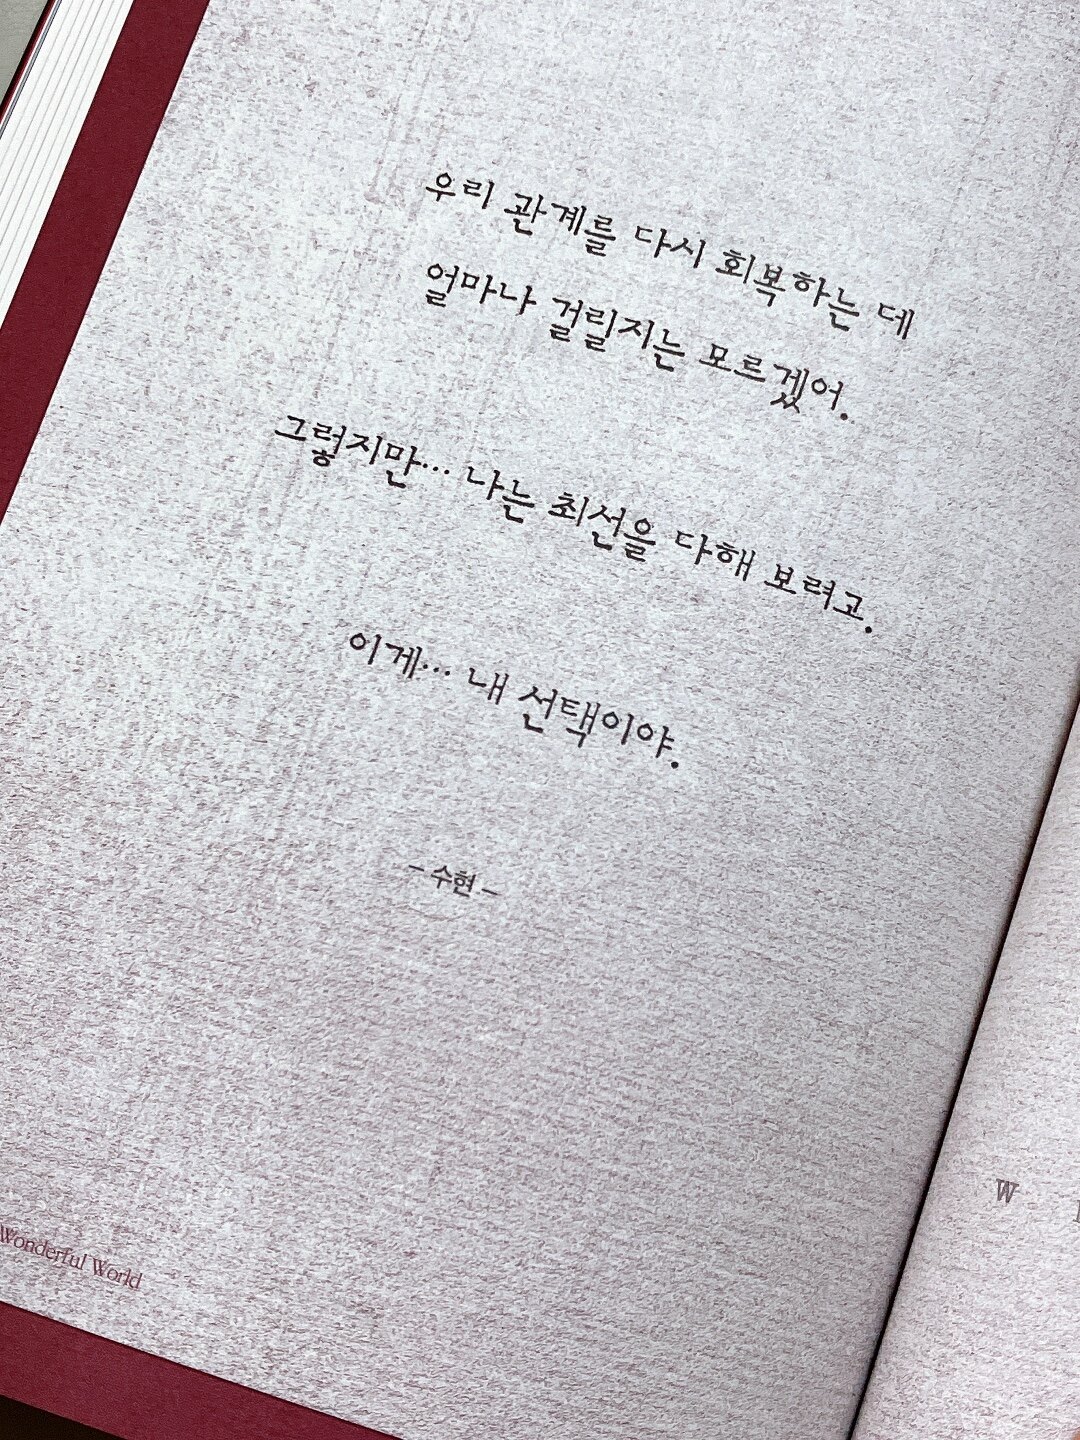 우리 관계를 다시 회복하는 데
얼마나 걸릴지는 모르겠어.
그렇지만… 나는 최선을 다해 보려고.
이게… 내 선택이야.
– 수현 –
Wonderful World
W